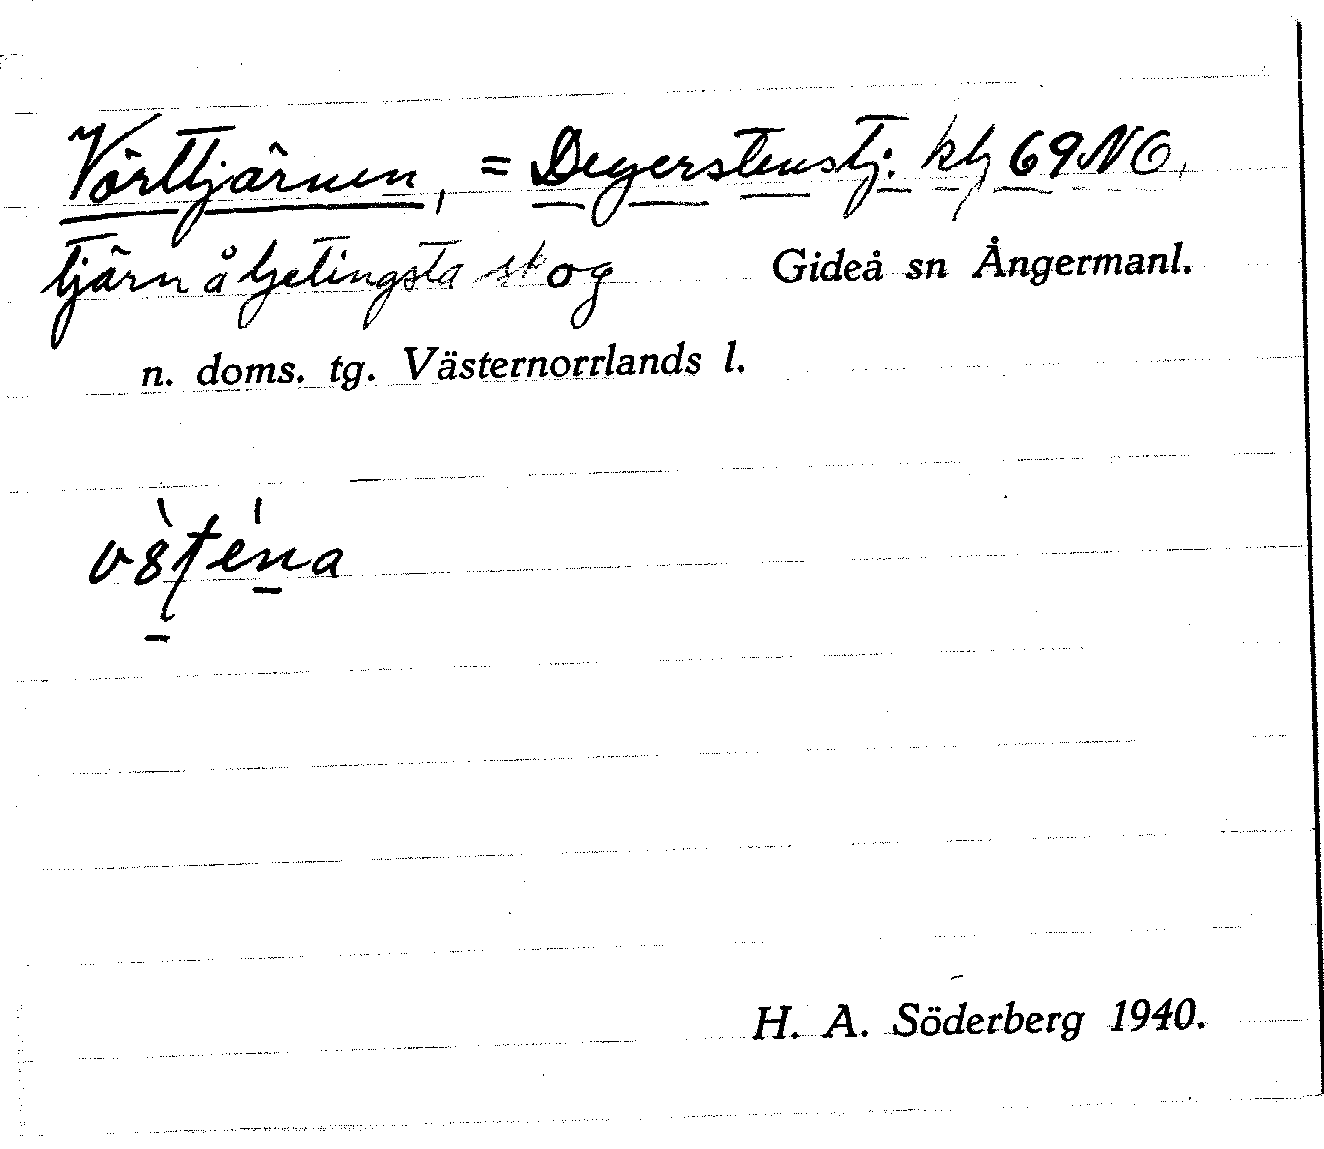 Vörttjärnen, = Degerstenstj: kbl 69 NO,
tjärn å Getingsta skog Gideå sn Ångermanl.
n. doms. tg. Västernorrlands l.
H. A. Söderberg 1940.